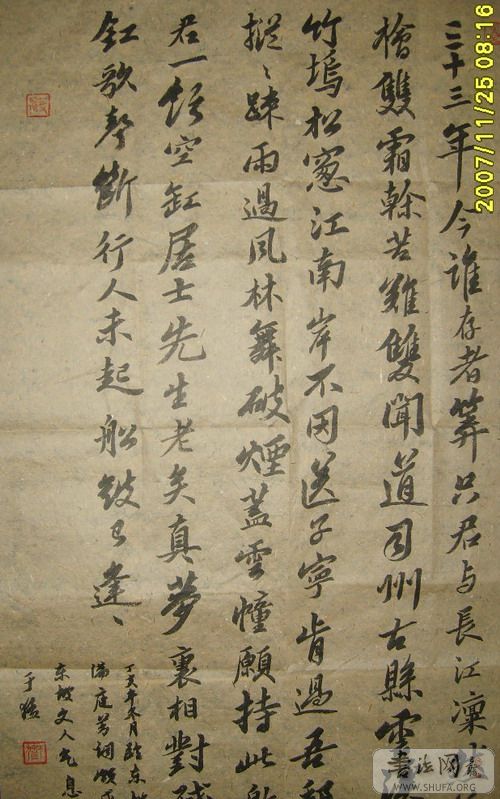 三十三年今誰存者算只君与長江凜
檜雙霜榦苦難雙聞道司州古縣雲
竹塢松窓江南岸不因送子寧肯過吾邦
摐〻疎雨過風林舞破煙蓋雲幢願持此
君一飲空缸居士先生老矣真夢裏相對殘
釭歌聲斷行人未起船鼓已逢〻
丁亥年冬月錄東坡
滿庭芳詞頗
东坡文人气息
于
2007/11/25 08:16
书法网
WWW.SHUFA.ORG